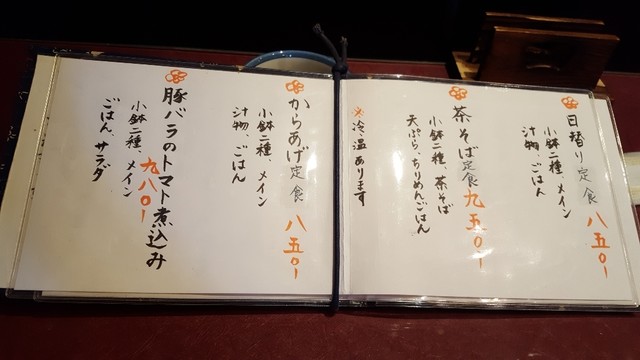 日替り定食 八五〇ー
小鉢二種、メイン
汁物、ごはん
茶そば定食 九五〇ー
小鉢二種、茶そば
天ぷら、ちりめんごはん
※冷、温あります
からあげ定食 八五〇ー
小鉢二種、メイン
汁物、ごはん
豚バラのトマト煮込み
九八〇ー
小鉢二種、メイン
ごはん、サラダ